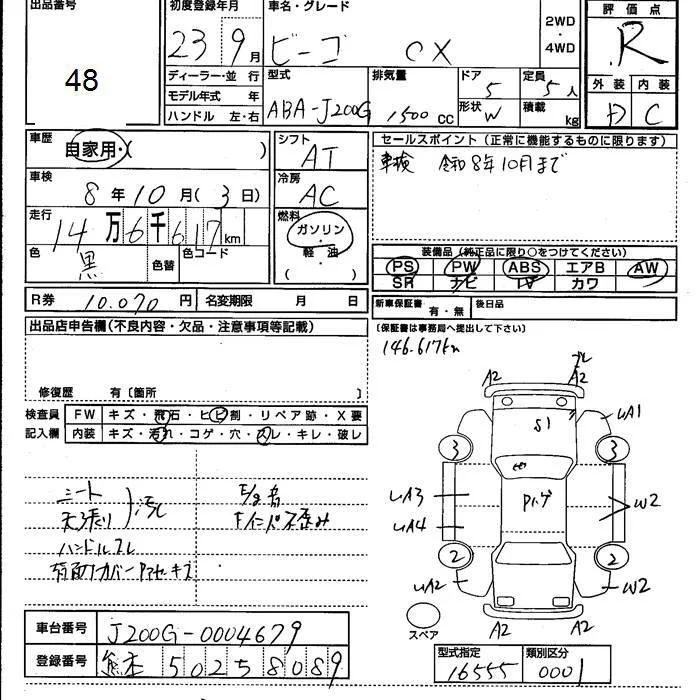 出品番号
48
初度登録年月
23 9月
車名・グレード
ビーゴ CX
2WD
・
4WD
評価点
R
外装 内装
D C
ディーラー・並行
モデル年式 年
ハンドル 左・右
型式
ABA-J200G
排気量
1500 cc
ドア
5
形状 W
定員
5人
積載
kg
車歴
自家用・( )
車検
8年10月(3日)
走行
14万6千617km
色
黒
色替
色コード
シフト
AT
冷房
AC
燃料
ガソリン・
軽油
( )
セールスポイント(正常に機能するものに限ります)
車検 令和8年10月まで
装備品(純正品に限り○をつけてください)
PS PW ABS エアB AW
SR ナビ TV カワ
R券 10.070円 名変期限 月 日
新車保証書
有・無
後日品
出品店申告欄(不良内容・欠品・注意事項等記載)
(保証書は事務局へ提出して下さい)
146.617km
修復歴 有〔箇所 〕
検査員
記入欄
FW キズ・飛石・ヒビ割・リペア跡・X要
内装 キズ・汚れ・コゲ・穴・スレ・キレ・破レ
シート
天張り
汚れ
ハンドルスレ
A2
A2
S1
A1
3
3
A3
A4
W2
2
2
A2
W2
A2
A2
スペア
車台番号 J200G-0004679
登録番号 熊本 50258089
型式指定
16555
類別区分
0001